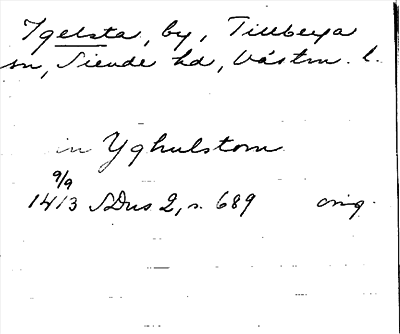 Igelsta, by, Tillberga
sn, Siende hd, Västm. l.
in Yghulstom
9/9
1413 SDns 2, s. 689 orig.